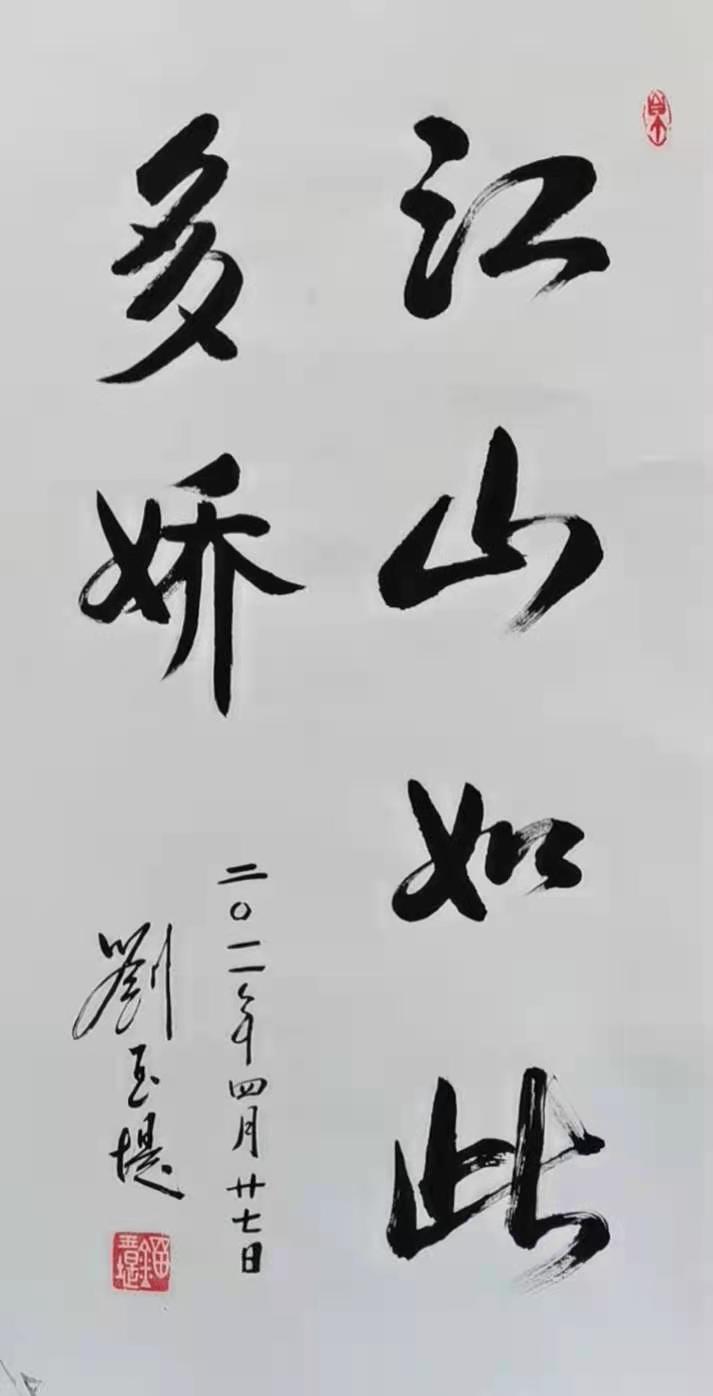 江山如此
多娇
二〇一一年四月廿七日
劉玉堤